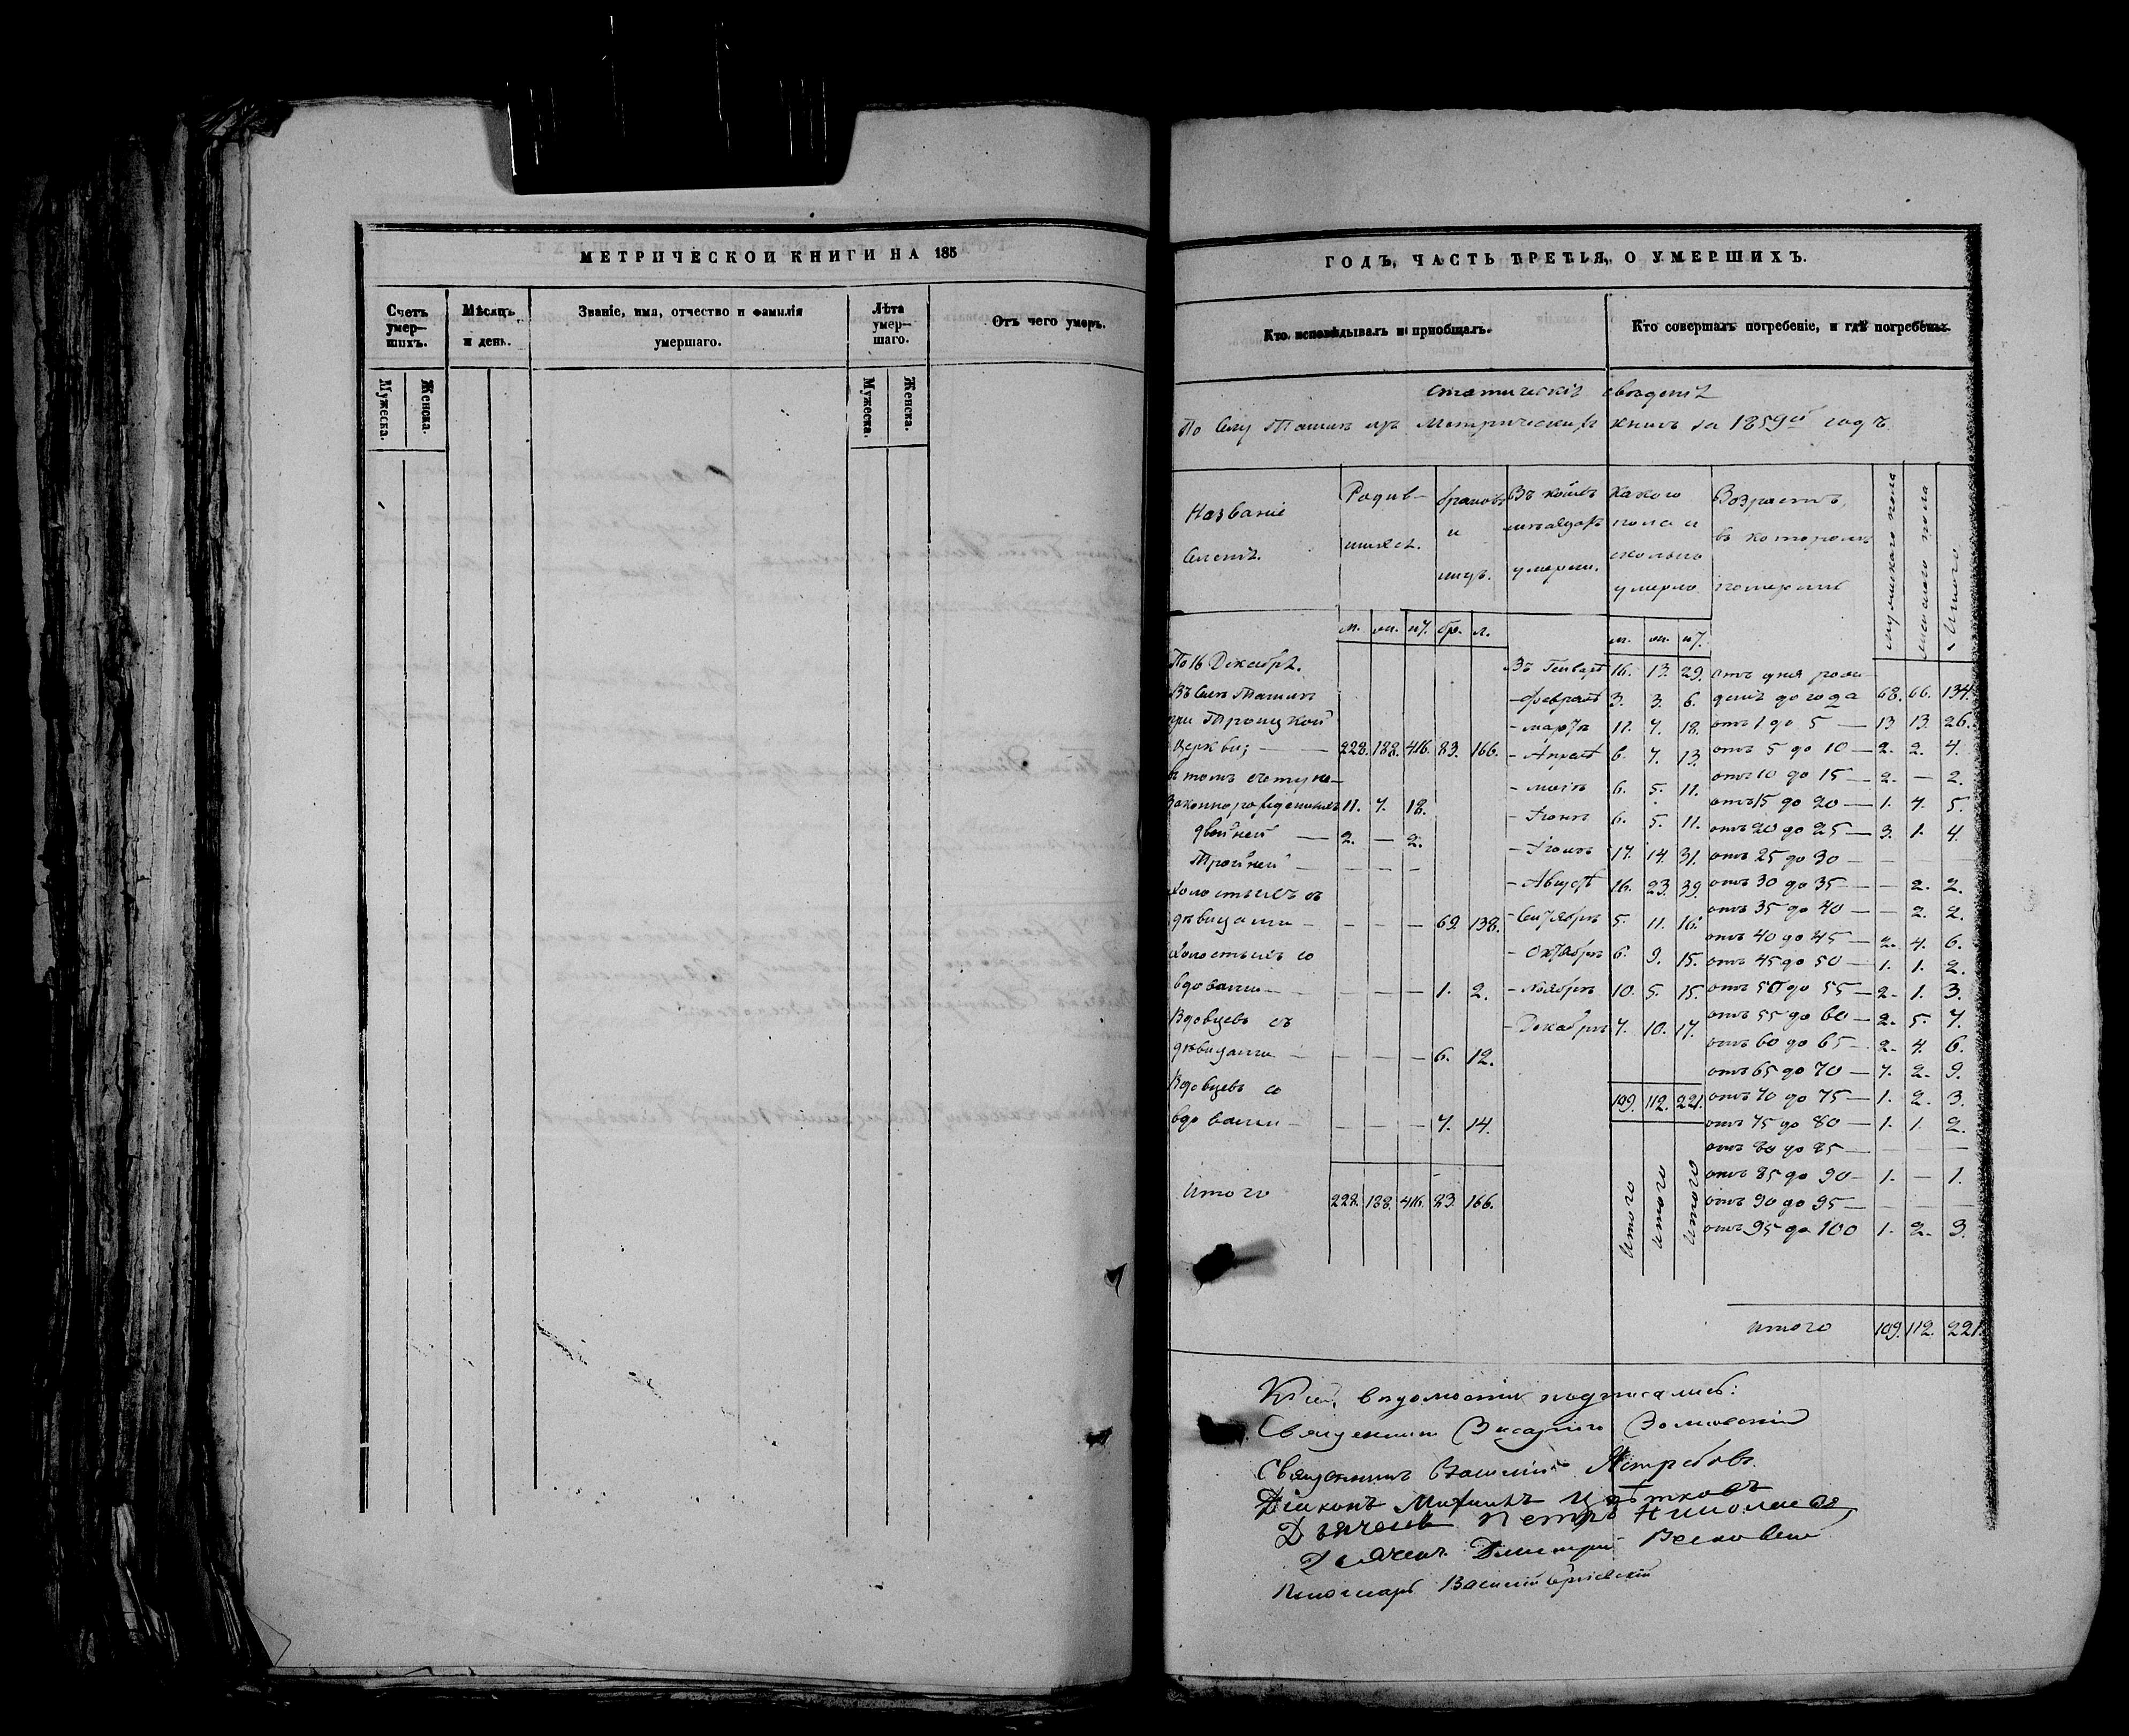 МЕТРИЧЕСКОЙ КНИГИ НА 185
Счетъ умер-шихъ.
Мѣсяцъ и день.
Званіе, имя, отчество и фамилія умершаго.
Лѣта умер-шаго.
Отъ чего умеръ.
Мужеска.
Женска.
Мужеска.
Женска.
ГОДЪ, ЧАСТЬ ТРЕТЬЯ, О УМЕРШИХЪ.
Кто исповѣдывалъ и приобщалъ.
Кто совершалъ погребеніе, и гдѣ погребены.
По Селу метрическихъ книгъ за 1859й годъ
Названіе
Родив-шихся.
браковъ и лицъ.
Въ коемъ мѣсяцѣ умерли.
Какого пола и сколько умерло
Возрастъ, въ которомъ померли
мужескаго пола
женскаго пола
Итого
м. жи. и7. бр. л.
м. жи. и7.
По 16 Декабря.
Въ Селѣ
при Троицкой
Церкви; — 228. 188. 416. 83. 166.
въ томъ счету не-
законнорожденныхъ 11. 7. 18.
двойней — 2. — 2.
Тройней — — — —
Холостыхъ съ
дѣвицами — — — — 69 138.
Холостыхъ со
вдовами — — — — 1. 2.
Вдовцевъ съ
дѣвицами — — — — 6. 12.
Вдовцевъ со
вдовами — — — — 7. 14.
Итого 228. 188. 416. 83. 166.
Въ Генварѣ 16. 13. 29.
- Февралѣ 3. 3. 6.
- мартѣ 11. 7. 18.
- Апрелѣ 6. 7. 13.
- маіѣ 6. 5. 11.
- Іюнѣ 6. 5. 11.
- Іюлѣ 17. 14. 31.
- Августѣ 16. 23. 39.
- Сентябрѣ 5. 11. 16.
- Октябрѣ 6. 9. 15.
- Ноябрѣ 10. 5. 15.
- Декабрѣ 7. 10. 17.
109. 112. 221.
Итого
итого
итого
отъ дня рож-
денія до года 68. 66. 134.
отъ 1 до 5 — 13. 13. 26.
отъ 5 до 10 — 2. 2. 4.
отъ 10 до 15 — 2. — 2.
отъ 15 до 20 — 1. 4. 5.
отъ 20 до 25 — 3. 1. 4.
отъ 25 до 30 — — — —
отъ 30 до 35 — — 2. 2.
отъ 35 до 40 — — 2. 2.
отъ 40 до 45 — 2. 4. 6.
отъ 45 до 50 — 1. 1. 2.
отъ 50 до 55 — 2. 1. 3.
отъ 55 до 60 — 2. 5. 7.
отъ 60 до 65 — 2. 4. 6.
отъ 65 до 70 — 7. 2. 9.
отъ 70 до 75 — 1. 2. 3.
отъ 75 до 80 — 1. 1. 2.
отъ 80 до 85 — — — —
отъ 85 до 90 — 1. — 1.
отъ 90 до 95 — — — —
отъ 95 до 100 1. 2. 3.
итого 109. 112. 221.
К сей вѣдомости подписались:
Священникъ
Священникъ Василій Ястребовъ.
Діаконъ Цвѣтковъ
Дьячекъ Петръ Николаевъ
Дьячекъ Димитрій
Пономарь Василій